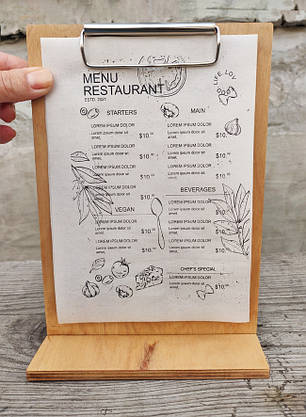 LIFE LOV
MENU
RESTAURANT
ESTD. 2021
STARTERS
LOREM IPSUM DOLOR
Lorem ipsum dolor sit
amet, $10.
LOREM IPSUM DOLOR
Lorem ipsum dolor sit
amet, $10.
LOREM IPSUM DOLOR
Lorem ipsum dolor sit
amet, $10.
LOREM IPSUM DOLOR
Lorem ipsum dolor sit
amet, $10.
VEGAN
LOREM IPSUM DOLOR
Lorem ipsum dolor sit
amet, $10.
LOREM IPSUM DOLOR
Lorem ipsum dolor sit
amet, $10.
MAIN
LOREM IPSUM DOLOR
Lorem ipsum dolor sit
amet, $10.
LOREM IPSUM DOLOR
Lorem ipsum dolor sit
amet, $10.
LOREM IPSUM DOLOR
Lorem ipsum dolor sit
amet, $10.
BEVERAGES
LOREM IPSUM DOLOR
Lorem ipsum dolor sit
amet, $10.
LOREM IPSUM DOLOR
Lorem ipsum dolor sit
amet, $10.
LOREM IPSUM DOLOR
Lorem ipsum dolor sit
amet, $10.
CHEF'S SPECIAL
LOREM IPSUM DOLOR
Lorem ipsum dolor sit
amet, $10.